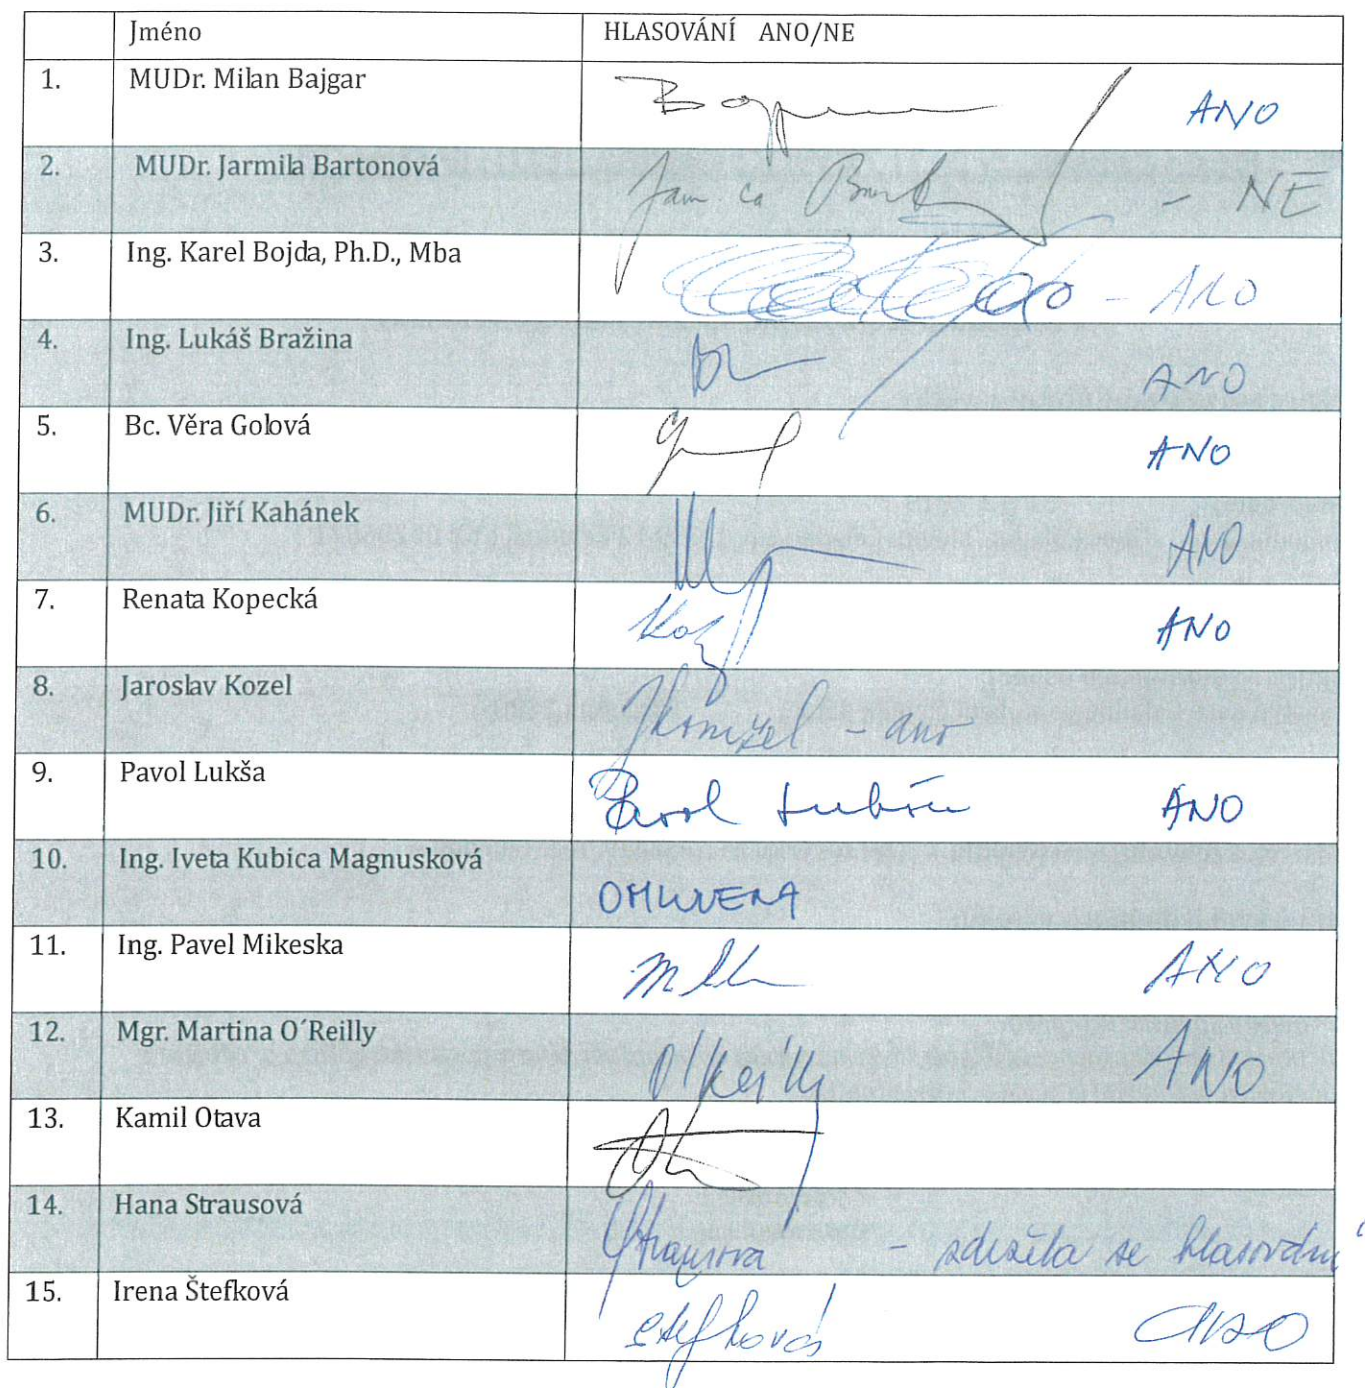 Jméno HLASOVÁNÍ ANO/NE
1. MUDr. Milan Bajgar ANO
2. MUDr. Jarmila Bartonová - NE
3. Ing. Karel Bojda, Ph.D., Mba - ANO
4. Ing. Lukáš Bražina ANO
5. Bc. Věra Golová ANO
6. MUDr. Jiří Kahánek ANO
7. Renata Kopecká ANO
8. Jaroslav Kozel - ano
9. Pavol Lukša ANO
10. Ing. Iveta Kubica Magnusková OMLUVENA
11. Ing. Pavel Mikeska ANO
12. Mgr. Martina O´Reilly O'Reilly ANO
13. Kamil Otava
14. Hana Strausová Strausova - zdržela se hlasování
15. Irena Štefková Štefková ANO